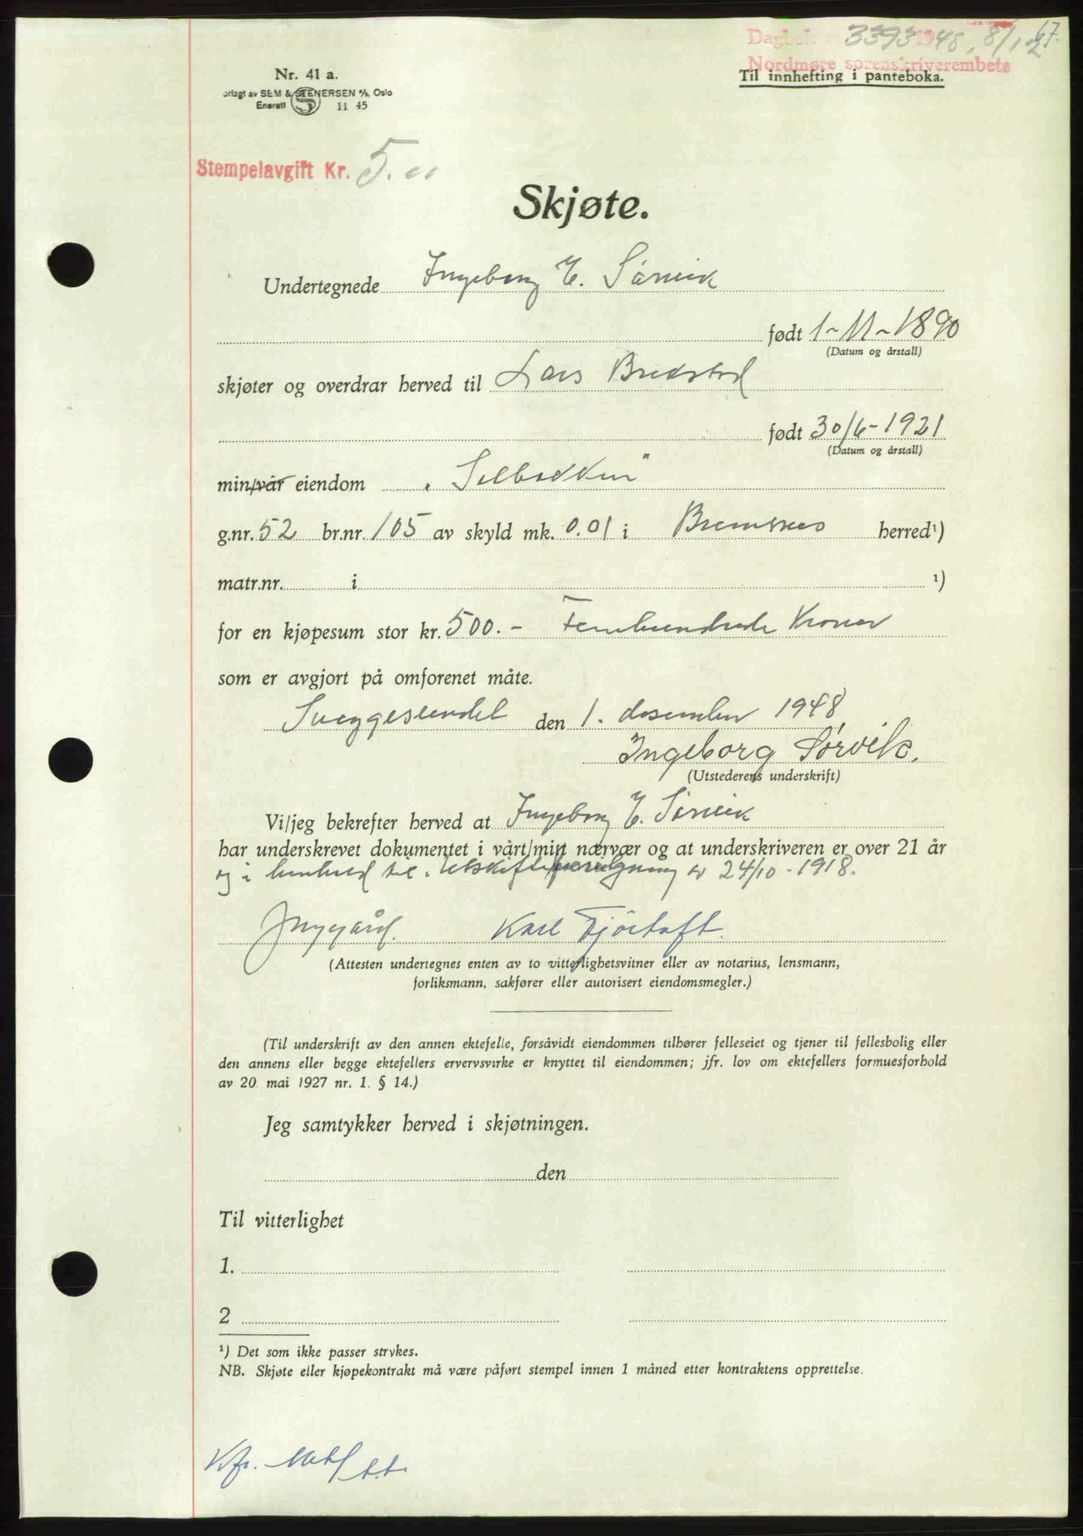 67.
Dagbok 3393 1948, 8/12
Nordmøre sorenskriverembete
Til innhefting i panteboka.
Nr. 41 a.
orlagt av SEM & STENERSEN A/S, Oslo
Enerett S 11 45
Stempelavgift Kr. 5.00
Skjøte.
Undertegnede Ingeborg E. Sørvik
født 1-11-1890
(Datum og årstall)
skjøter og overdrar herved til Lars Bredstad
født 30/6-1921
(Datum og årstall)
min/vår eiendom "Solbakken"
g.nr. 52 br.nr. 105 av skyld mk. 0.01 i Bremsnes herred¹)
matr.nr. i ¹)
for en kjøpesum stor kr. 500.- Femhundrede Kroner
som er avgjort på omforenet måte.
Sveggesundet den 1. desember 1948
Ingeborg Sørvik.
(Utstederens underskrift)
Vi/jeg bekrefter herved at Ingeborg E. Sørvik
har underskrevet dokumentet i vårt/mitt nærvær og at underskriveren er over 21 år
og i henhold til Utskifts av 24/10-1918.
J Nygård. Karl Fjørtoft.
(Attesten undertegnes enten av to vitterlighetsvitner eller av notarius, lensmann,
forliksmann, sakfører eller autorisert eiendomsmegler.)
(Til underskrift av den annen ektefelle, forsåvidt eiendommen tilhører felleseiet og tjener til fellesbolig eller
den annens eller begge ektefellers ervervsvirke er knyttet til eiendommen; jfr. lov om ektefellers formuesforhold
av 20 mai 1927 nr. 1. § 14.)
Jeg samtykker herved i skjøtningen.
den
Til vitterlighet
1.
2
¹) Det som ikke passer strykes.
NB. Skjøte eller kjøpekontrakt må være påført stempel innen 1 måned etter kontraktens opprettelse.